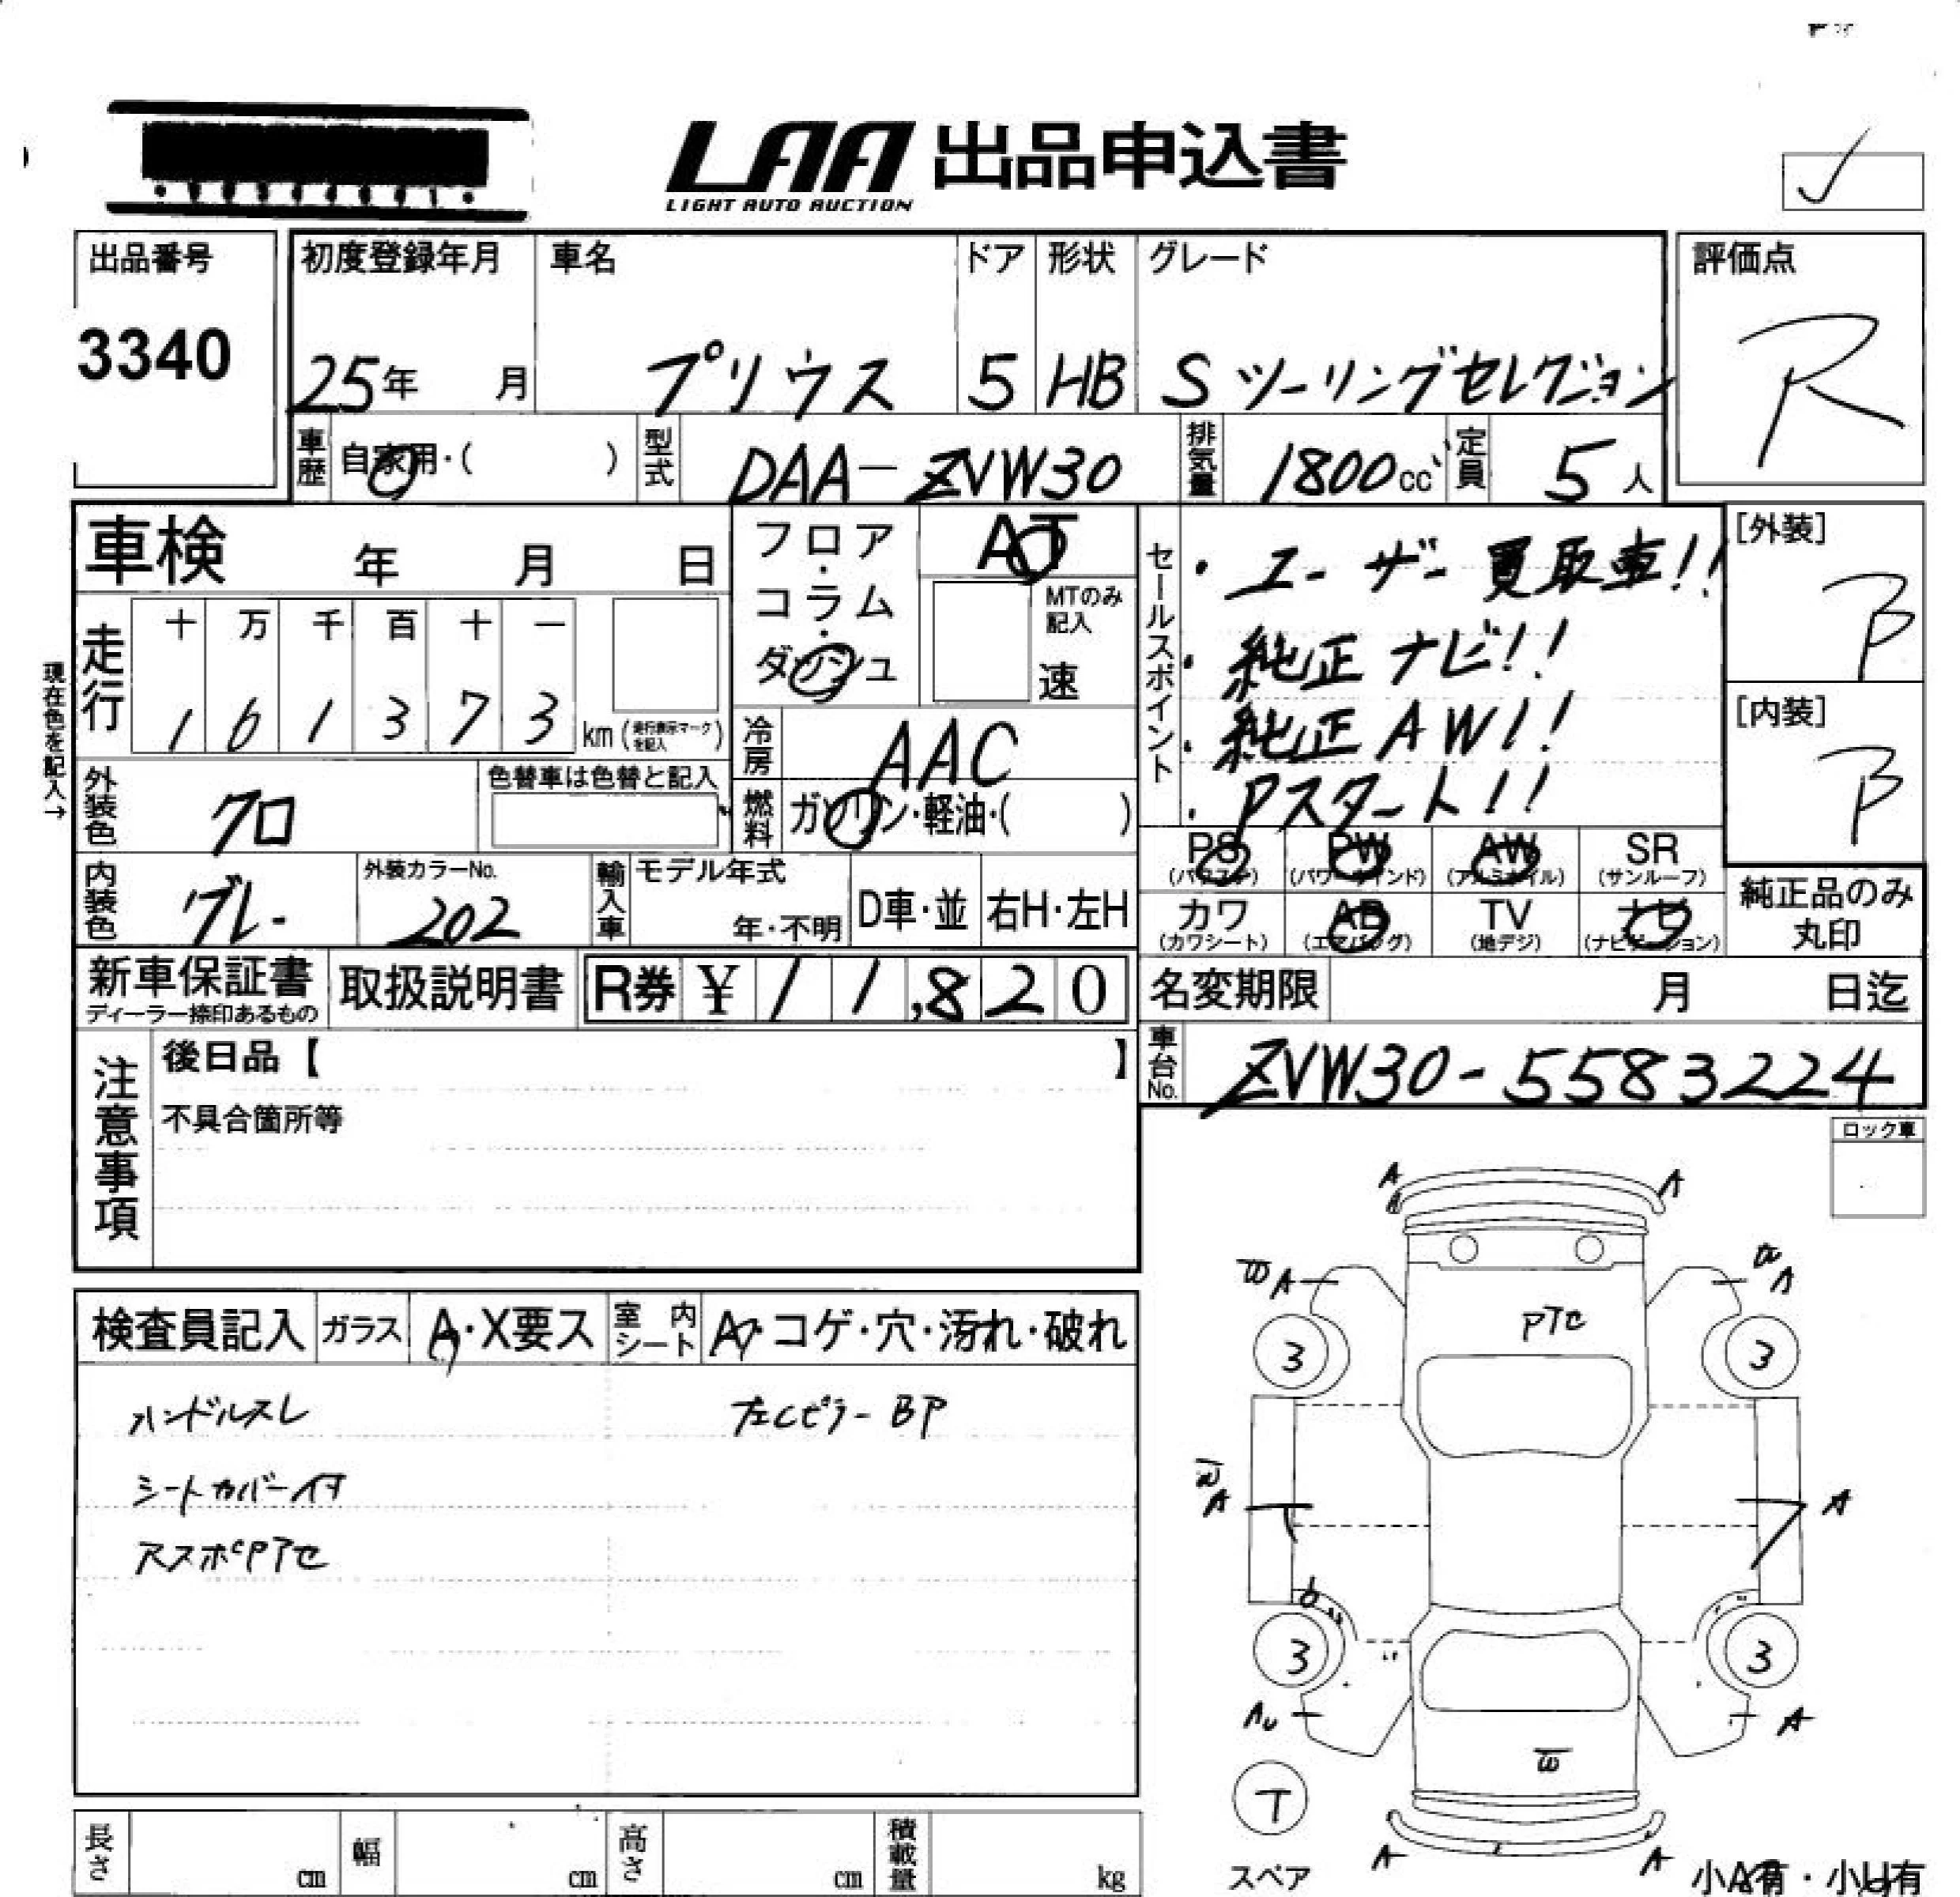 LAA 出品申込書
LIGHT AUTO AUCTION
出品番号
3340
初度登録年月
25年 月
車名
プリウス
ドア
5
形状
HB
グレード
S ツーリングセレクション
評価点
R
車歴 自家用・( )
型式 DAA-ZVW30
排気量 1800cc
定員 5人
車検 年 月 日
フロア・コラム・ダッシュ
AT
MTのみ記入
速
セールスポイント
・ユーザー買取車!!
・純正ナビ!!
・純正AW!!
・Pスタート!!
[外装]
B
[内装]
B
走行
十 万 千 百 十 一
1 6 1 3 7 3 km (走行表示マークを記入)
現在色を記入→
冷房 AAC
外装色 クロ
色替車は色替と記入
燃料 ガソリン・軽油・( )
PS (パワステ)
PW (パワーウインド)
AW (アルミホイル)
SR (サンルーフ)
カワ (カワシート)
AB (エアバッグ)
TV (地デジ)
ナビ (ナビゲーション)
純正品のみ丸印
内装色 グレー
外装カラーNo. 202
輸入車 モデル年式 年・不明
D車・並 右H・左H
新車保証書
ディーラー捺印あるもの
取扱説明書
R券 ¥ 1 1,8 2 0
名変期限 月 日迄
車台No. ZVW30-5583224
注意事項
後日品【 】
不具合箇所等
ロック車
検査員記入
ガラス A・X要ス
室内シート A・コゲ・穴・汚れ・破れ
ハンドルスレ
左Cピラー BP
シートカバー付
アスポCPTセ
A A
W A
W A
PTセ
3 3
W A
A
b
3 3
AU
A
W
T
スペア
A A
小A有・小U有
長さ cm
幅 cm
高さ cm
積載量 kg